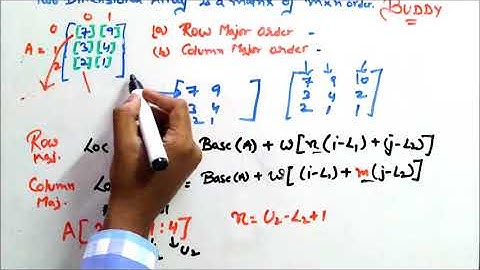 Two Dimensional Array is a matrix of m×n order.
BUDDY
0 1
0 [7] [9]
A = 1 [3] [4]
2 [2] [1]
(a) Row Major order -
(b) Column Major order -
7 9
3 4
2 1
7 9 10
3 4 2
2 1 1
Row Maj. Loc Base(A) + w[n(i-L₁) + (j-L₂)]
Column Maj. Base(A) + w[(i-L₁) + m(j-L₂)]
A[ 1:4]
U₂
n = U₂-L₂+1